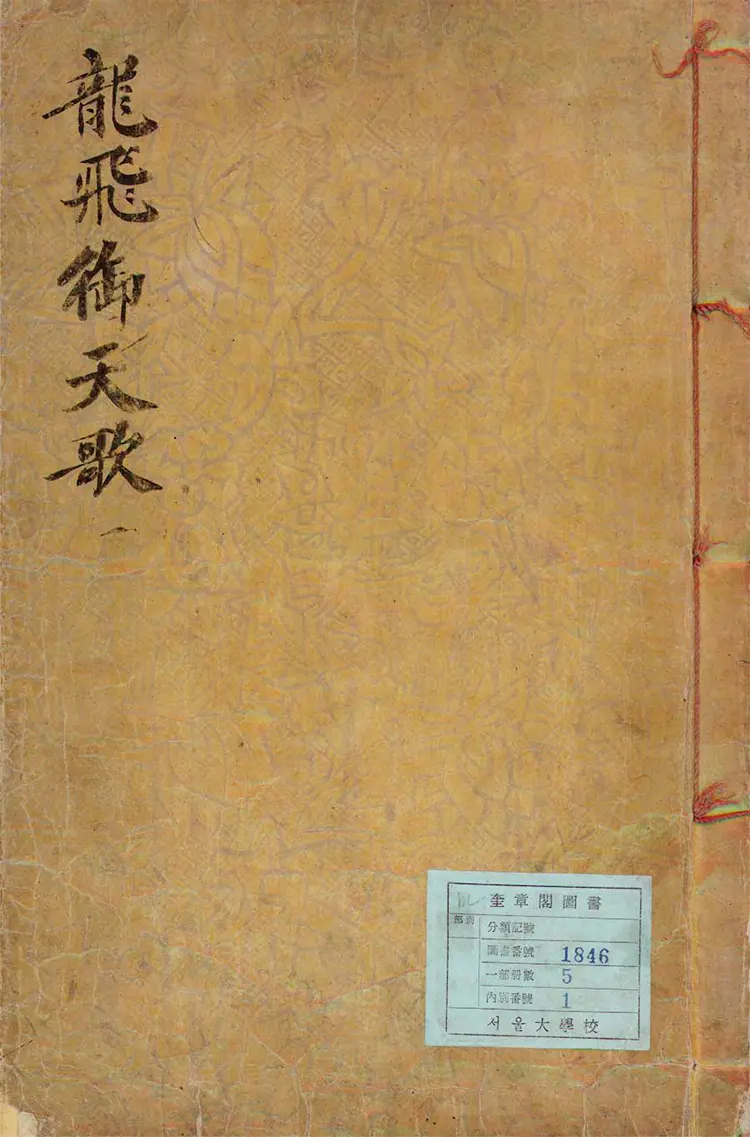 龍飛御天歌 一
奎章閣圖書
部別
分類記號
圖書番號 1846
一部冊數 5
內別番號 1
서울大學校